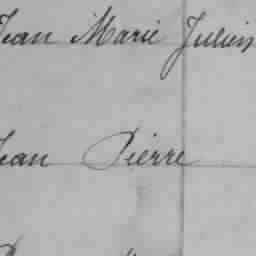 Jean Marie Julien
Jean Pierre